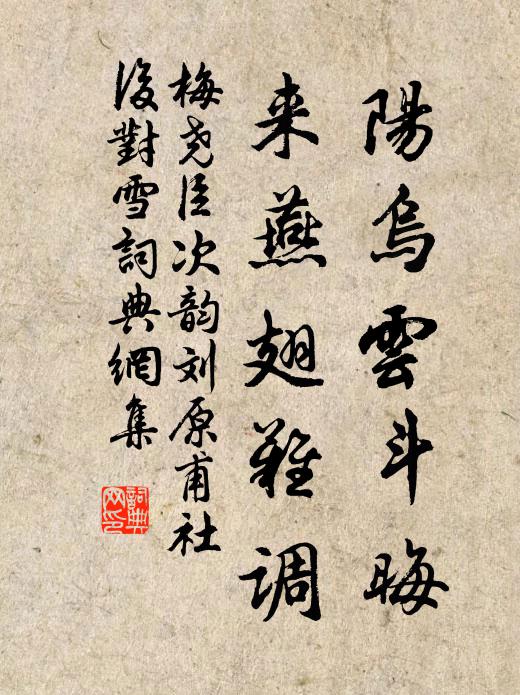 陽烏雲斗晦
来燕翅難調
梅尧臣次韵刘原甫社
後對雪詞典網集
詞典
网印